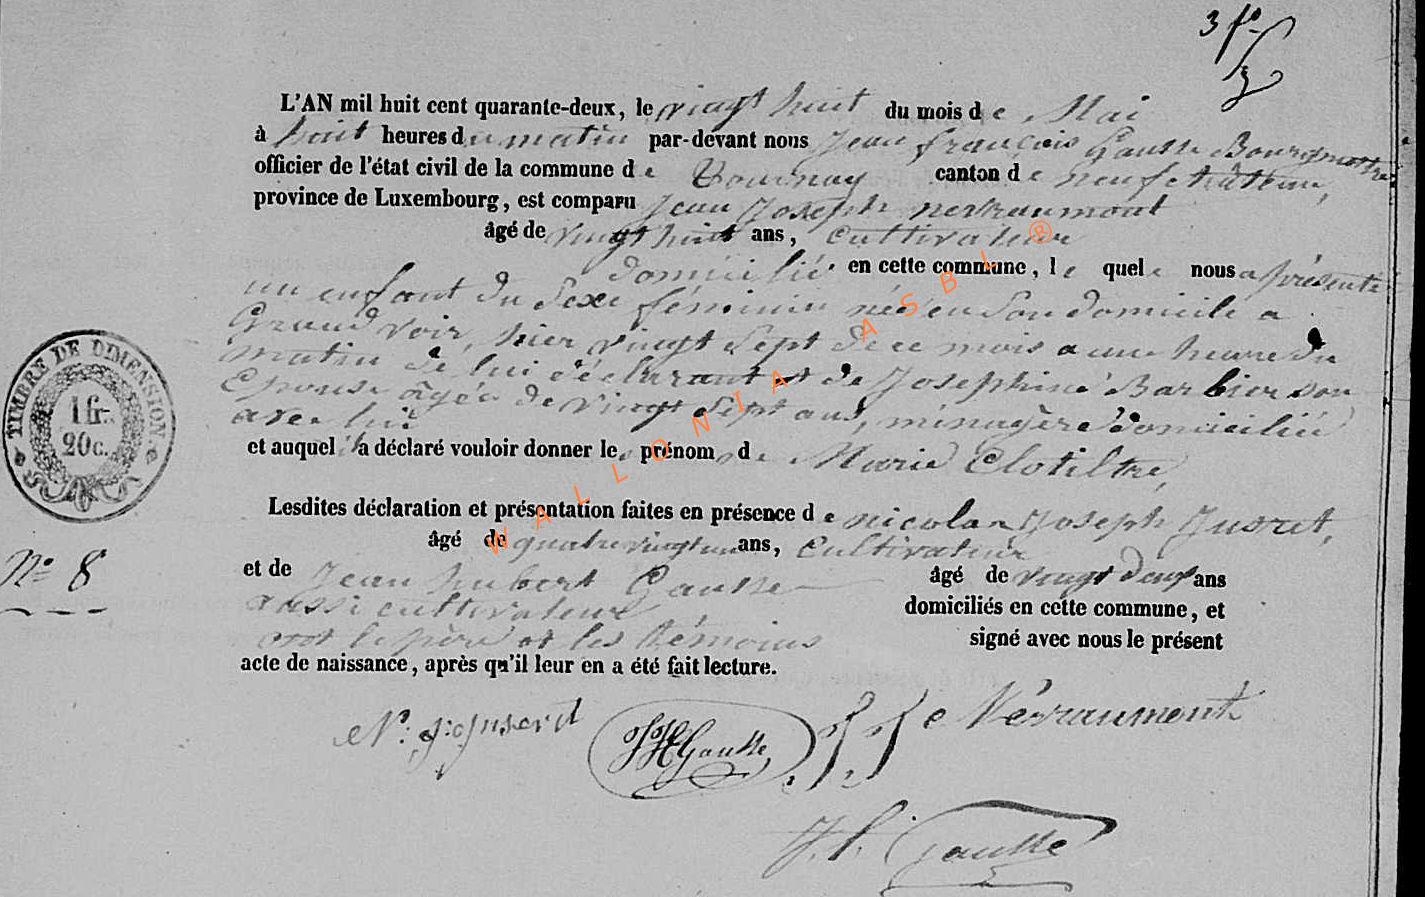 3 fs
L'AN mil huit cent quarante-deux, le vingt huit du mois de Mai
à huit heures du matin par-devant nous Jean françois Gausse Bourgmestre
officier de l'état civil de la commune de Tournay canton de neufchâteau,
province de Luxembourg, est comparu Jean Joseph nerraumont
âgé de vingt huit ans, cultivateur
domicilié en cette commune, lequel nous a présenté
un enfant du Sexe féminin né en son domicile a
Grand voir, hier vingt Sept de ce mois a une heure du
matin de lui déclarant et de Josephine Barbier son
Epouse agée de vingt Sept ans, ménagère domiciliée
avec lui
et auquel il a déclaré vouloir donner le prénom de Marie Clotiltre,
Lesdites déclaration et présentation faites en présence de nicolas Joseph Jusret,
âgé de quatrevingt un ans, Cultivateur
et de Jean hubert Gausse âgé de vingt deux ans
aussi cultivateur domiciliés en cette commune, et
ont le père et les témoins signé avec nous le présent
acte de naissance, après qu'il leur en a été fait lecture.
TIMBRE DE DIMENSION.
1 fr.
20 c.
N° 8
N: j: Jusret
JH Gausse
J J Nerraumont
J. f. Gausse
WALLONIA ASBL ®